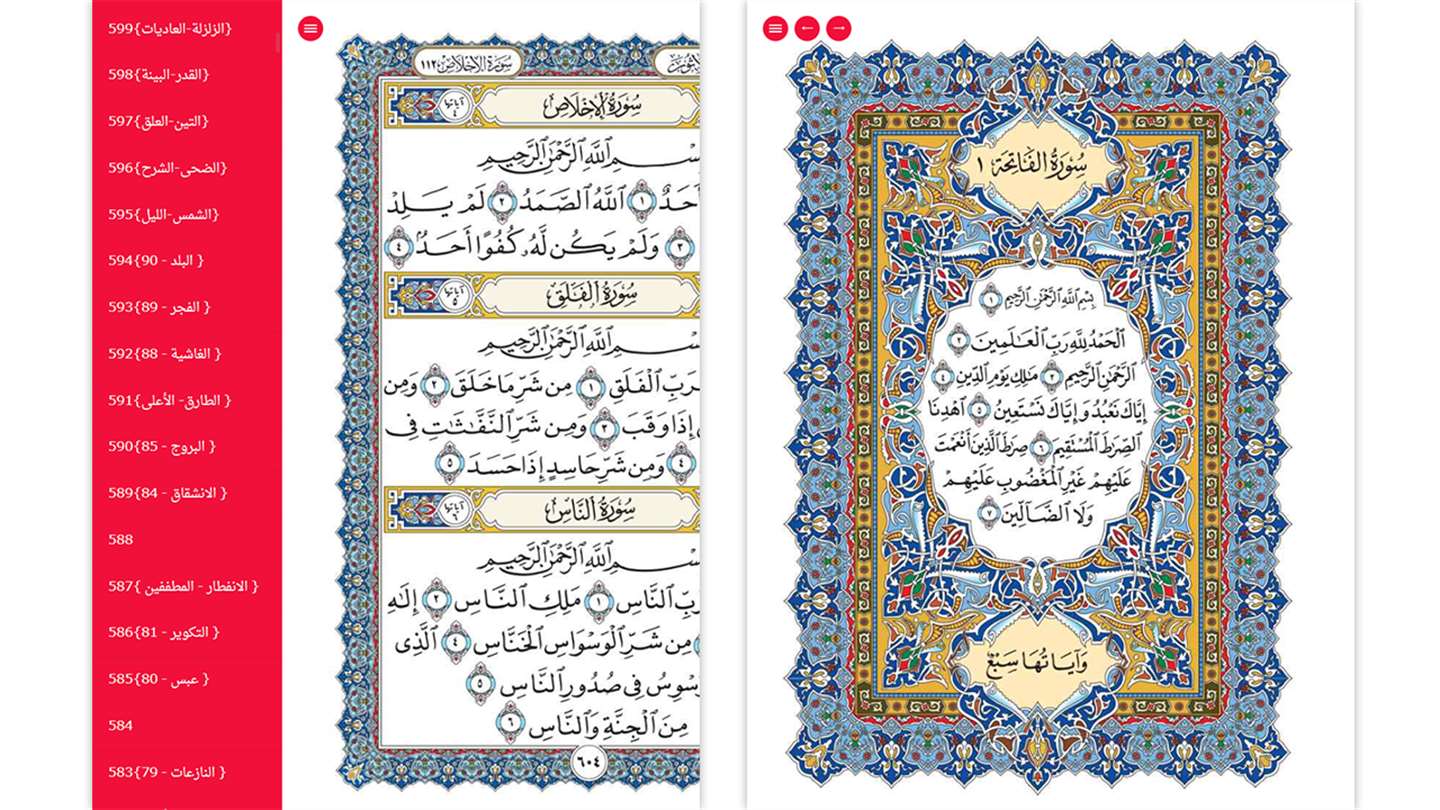 599{الزلزلة-العاديات}
598{القدر-البينة}
597{التين-العلق}
596{الضحى-الشرح}
595{الشمس-الليل}
594{البلد - 90 }
593{الفجر - 89 }
592{الغاشية - 88 }
591{الطارق- الأعلى }
590{البروج - 85 }
589{الانشقاق - 84 }
588
587{ الانفطار - المطففين }
586{التكوير - 81 }
585{عبس - 80 }
584
583{النازعات - 79 }
سورة الإخلاص ١١٢
سُورَةُ الإِخْلَاصِ
آياتها ٤
ـسْمِ ٱللَّهِ ٱلرَّحْمَٰنِ ٱلرَّحِيمِ
أَحَدٌ ١ ٱللَّهُ ٱلصَّمَدُ ٢ لَمْ يَلِدْ
٣ وَلَمْ يَكُن لَّهُۥ كُفُوًا أَحَدٌۢ ٤
سُورَةُ الْفَلَقِ
آياتها ٥
ـسْمِ ٱللَّهِ ٱلرَّحْمَٰنِ ٱلرَّحِيمِ
ـرَبِّ ٱلْفَلَقِ ١ مِن شَرِّ مَا خَلَقَ ٢ وَمِن
إِذَا وَقَبَ ٣ وَمِن شَرِّ ٱلنَّفَّٰثَٰتِ فِى
٤ وَمِن شَرِّ حَاسِدٍ إِذَا حَسَدَ ٥
سُورَةُ النَّاسِ
آياتها ٦
ـسْمِ ٱللَّهِ ٱلرَّحْمَٰنِ ٱلرَّحِيمِ
ـرَبِّ ٱلنَّاسِ ١ مَلِكِ ٱلنَّاسِ ٢ إِلَٰهِ
مِن شَرِّ ٱلْوَسْوَاسِ ٱلْخَنَّاسِ ٤ ٱلَّذِى
ـوَسْوِسُ فِى صُدُورِ ٱلنَّاسِ ٥
مِنَ ٱلْجِنَّةِ وَٱلنَّاسِ ٦
٦٠٤
سُورَةُ الْفَاتِحَةِ ١
بِسْمِ ٱللَّهِ ٱلرَّحْمَٰنِ ٱلرَّحِيمِ ١
ٱلْحَمْدُ لِلَّهِ رَبِّ ٱلْعَٰلَمِينَ ٢
ٱلرَّحْمَٰنِ ٱلرَّحِيمِ ٣ مَٰلِكِ يَوْمِ ٱلدِّينِ ٤
إِيَّاكَ نَعْبُدُ وَإِيَّاكَ نَسْتَعِينُ ٥ ٱهْدِنَا
ٱلصِّرَٰطَ ٱلْمُسْتَقِيمَ ٦ صِرَٰطَ ٱلَّذِينَ أَنْعَمْتَ
عَلَيْهِمْ غَيْرِ ٱلْمَغْضُوبِ عَلَيْهِمْ
وَلَا ٱلضَّآلِّينَ ٧
وَآيَاتُهَا سَبْعٌ